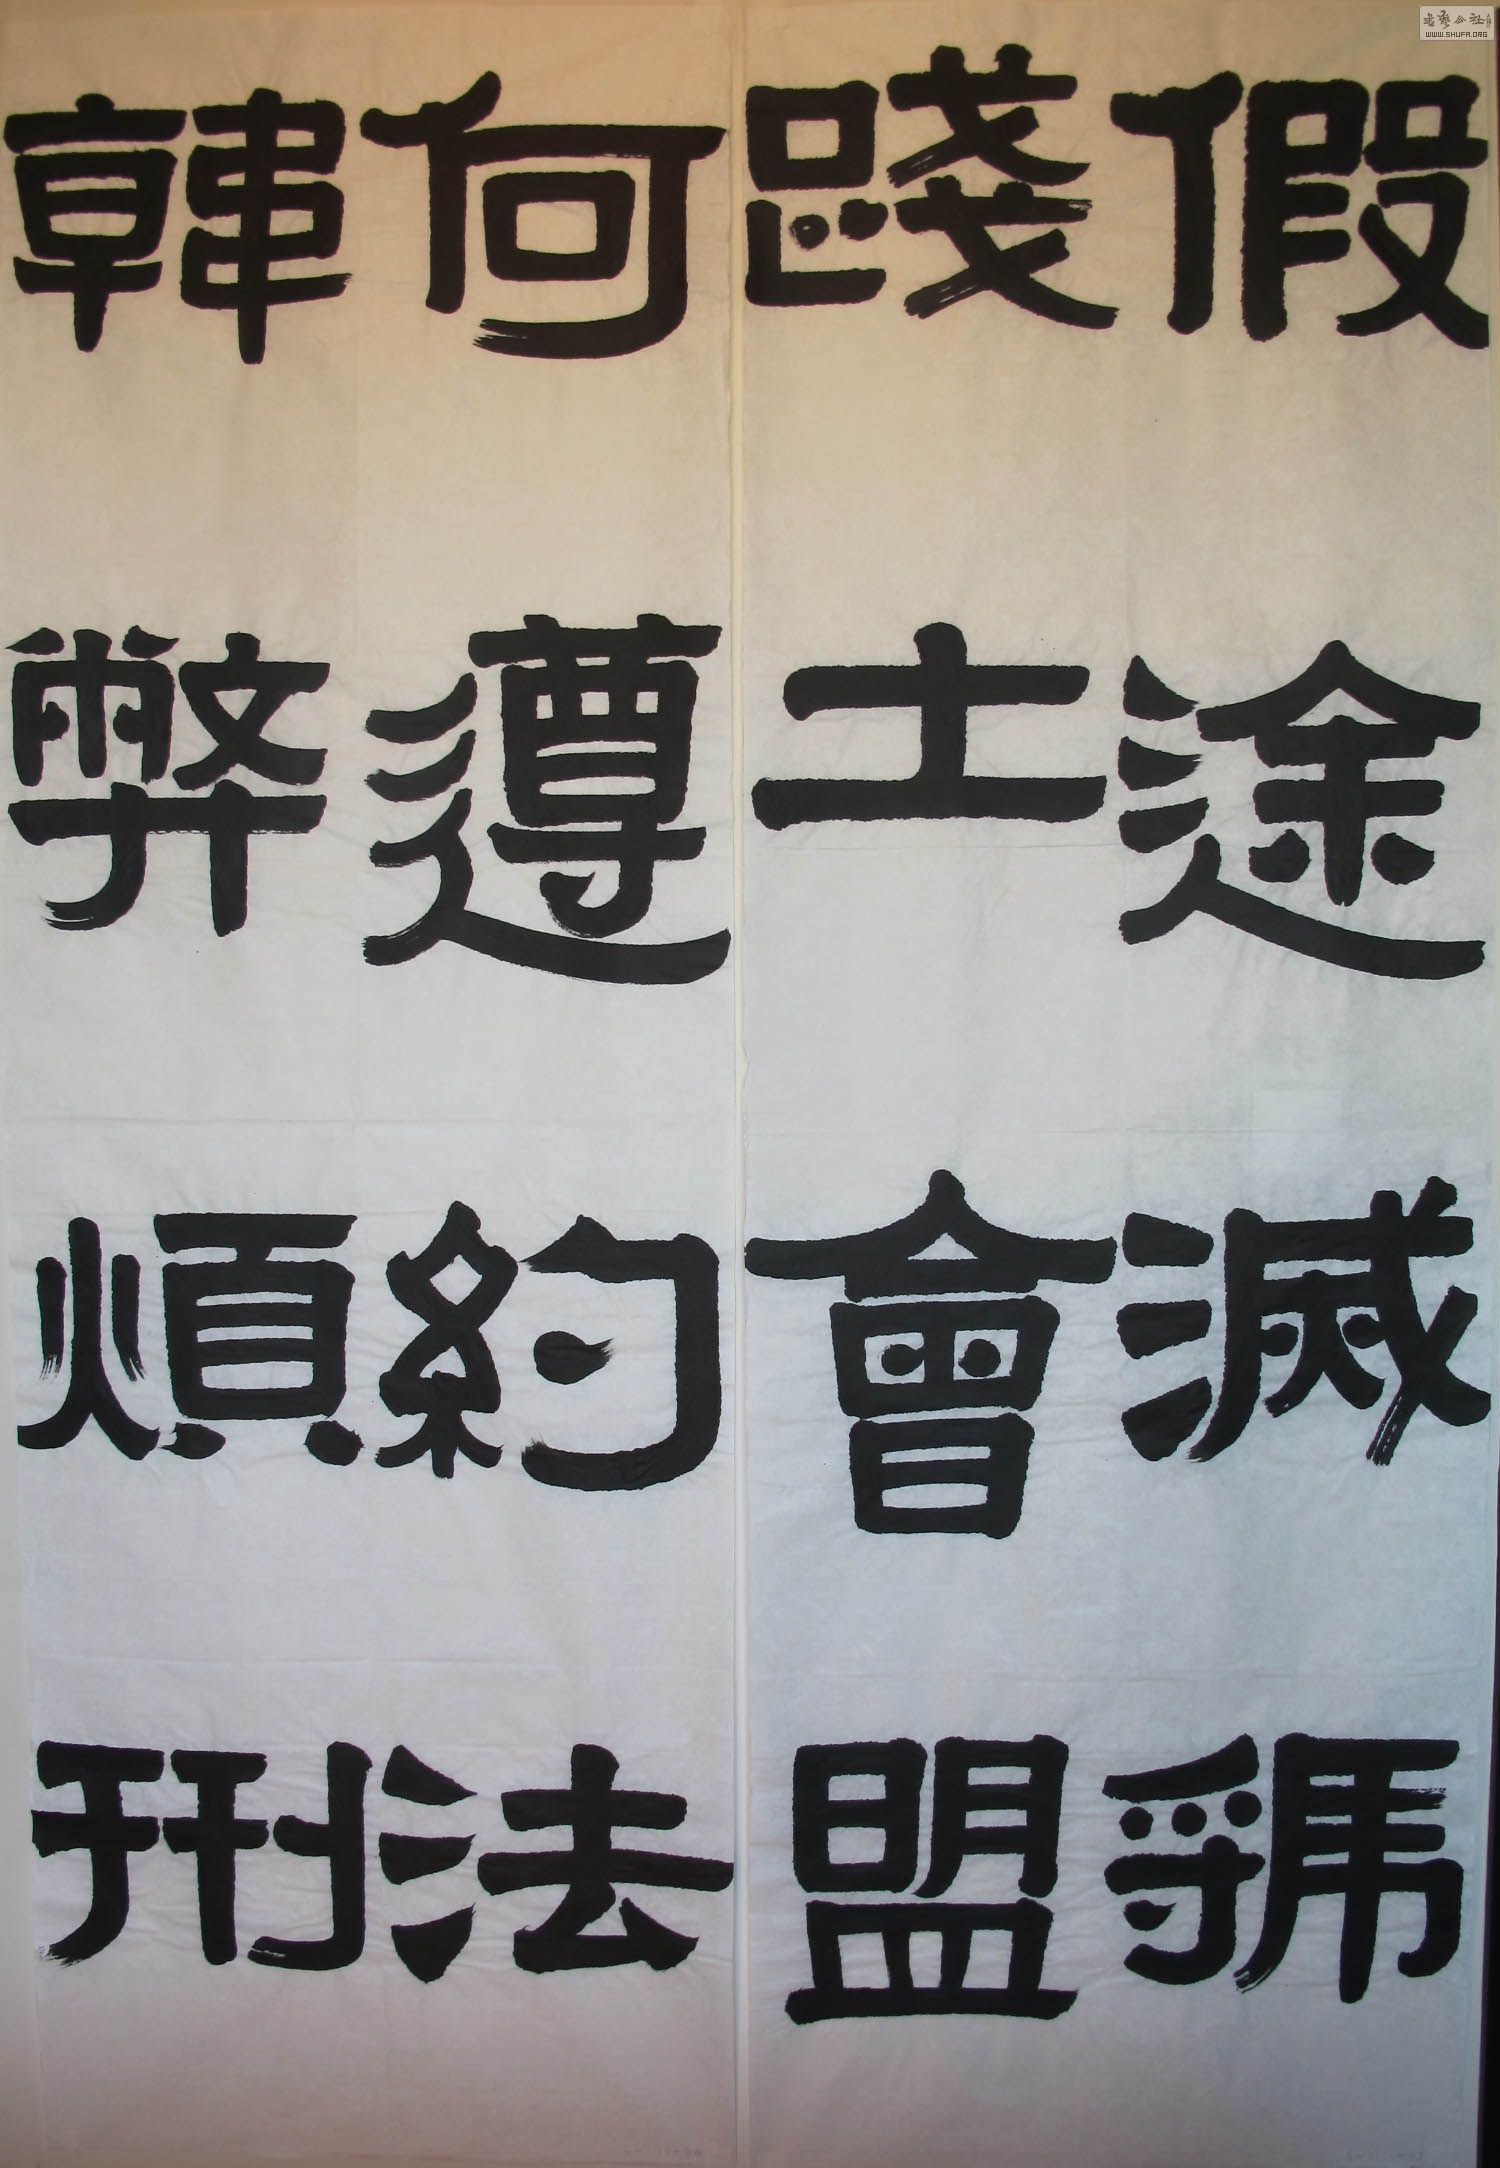 假途滅虢
踐土會盟
何遵約法
韓弊煩刑
書藝公社
WWW.SHUFA.ORG